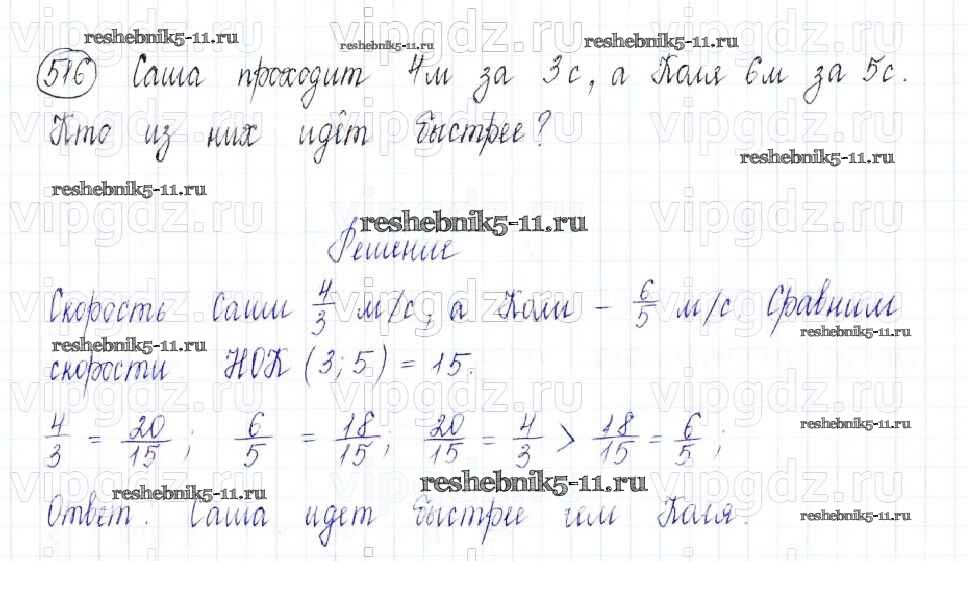 reshebnik5-11.ru
reshebnik5-11.ru
reshebnik5-11.ru
516 Саша проходит 4м за 3с, а Коля 6м за 5с.
Кто из них идёт быстрее?
reshebnik5-11.ru
reshebnik5-11.ru
reshebnik5-11.ru
Решение
Скорость Саши 4/3 м/с, а Коли – 6/5 м/с. Сравним
reshebnik5-11.ru
reshebnik5-11.ru
скорости НОК (3; 5) = 15.
4/3 = 20/15; 6/5 = 18/15; 20/15 = 4/3 > 18/15 = 6/5;
reshebnik5-11.ru
reshebnik5-11.ru
reshebnik5-11.ru
Ответ. Саша идет быстрее чем Коля.
reshebnik5-11.ru
vipgdz.ru vipgdz.ru vipgdz.ru vipgdz.ru